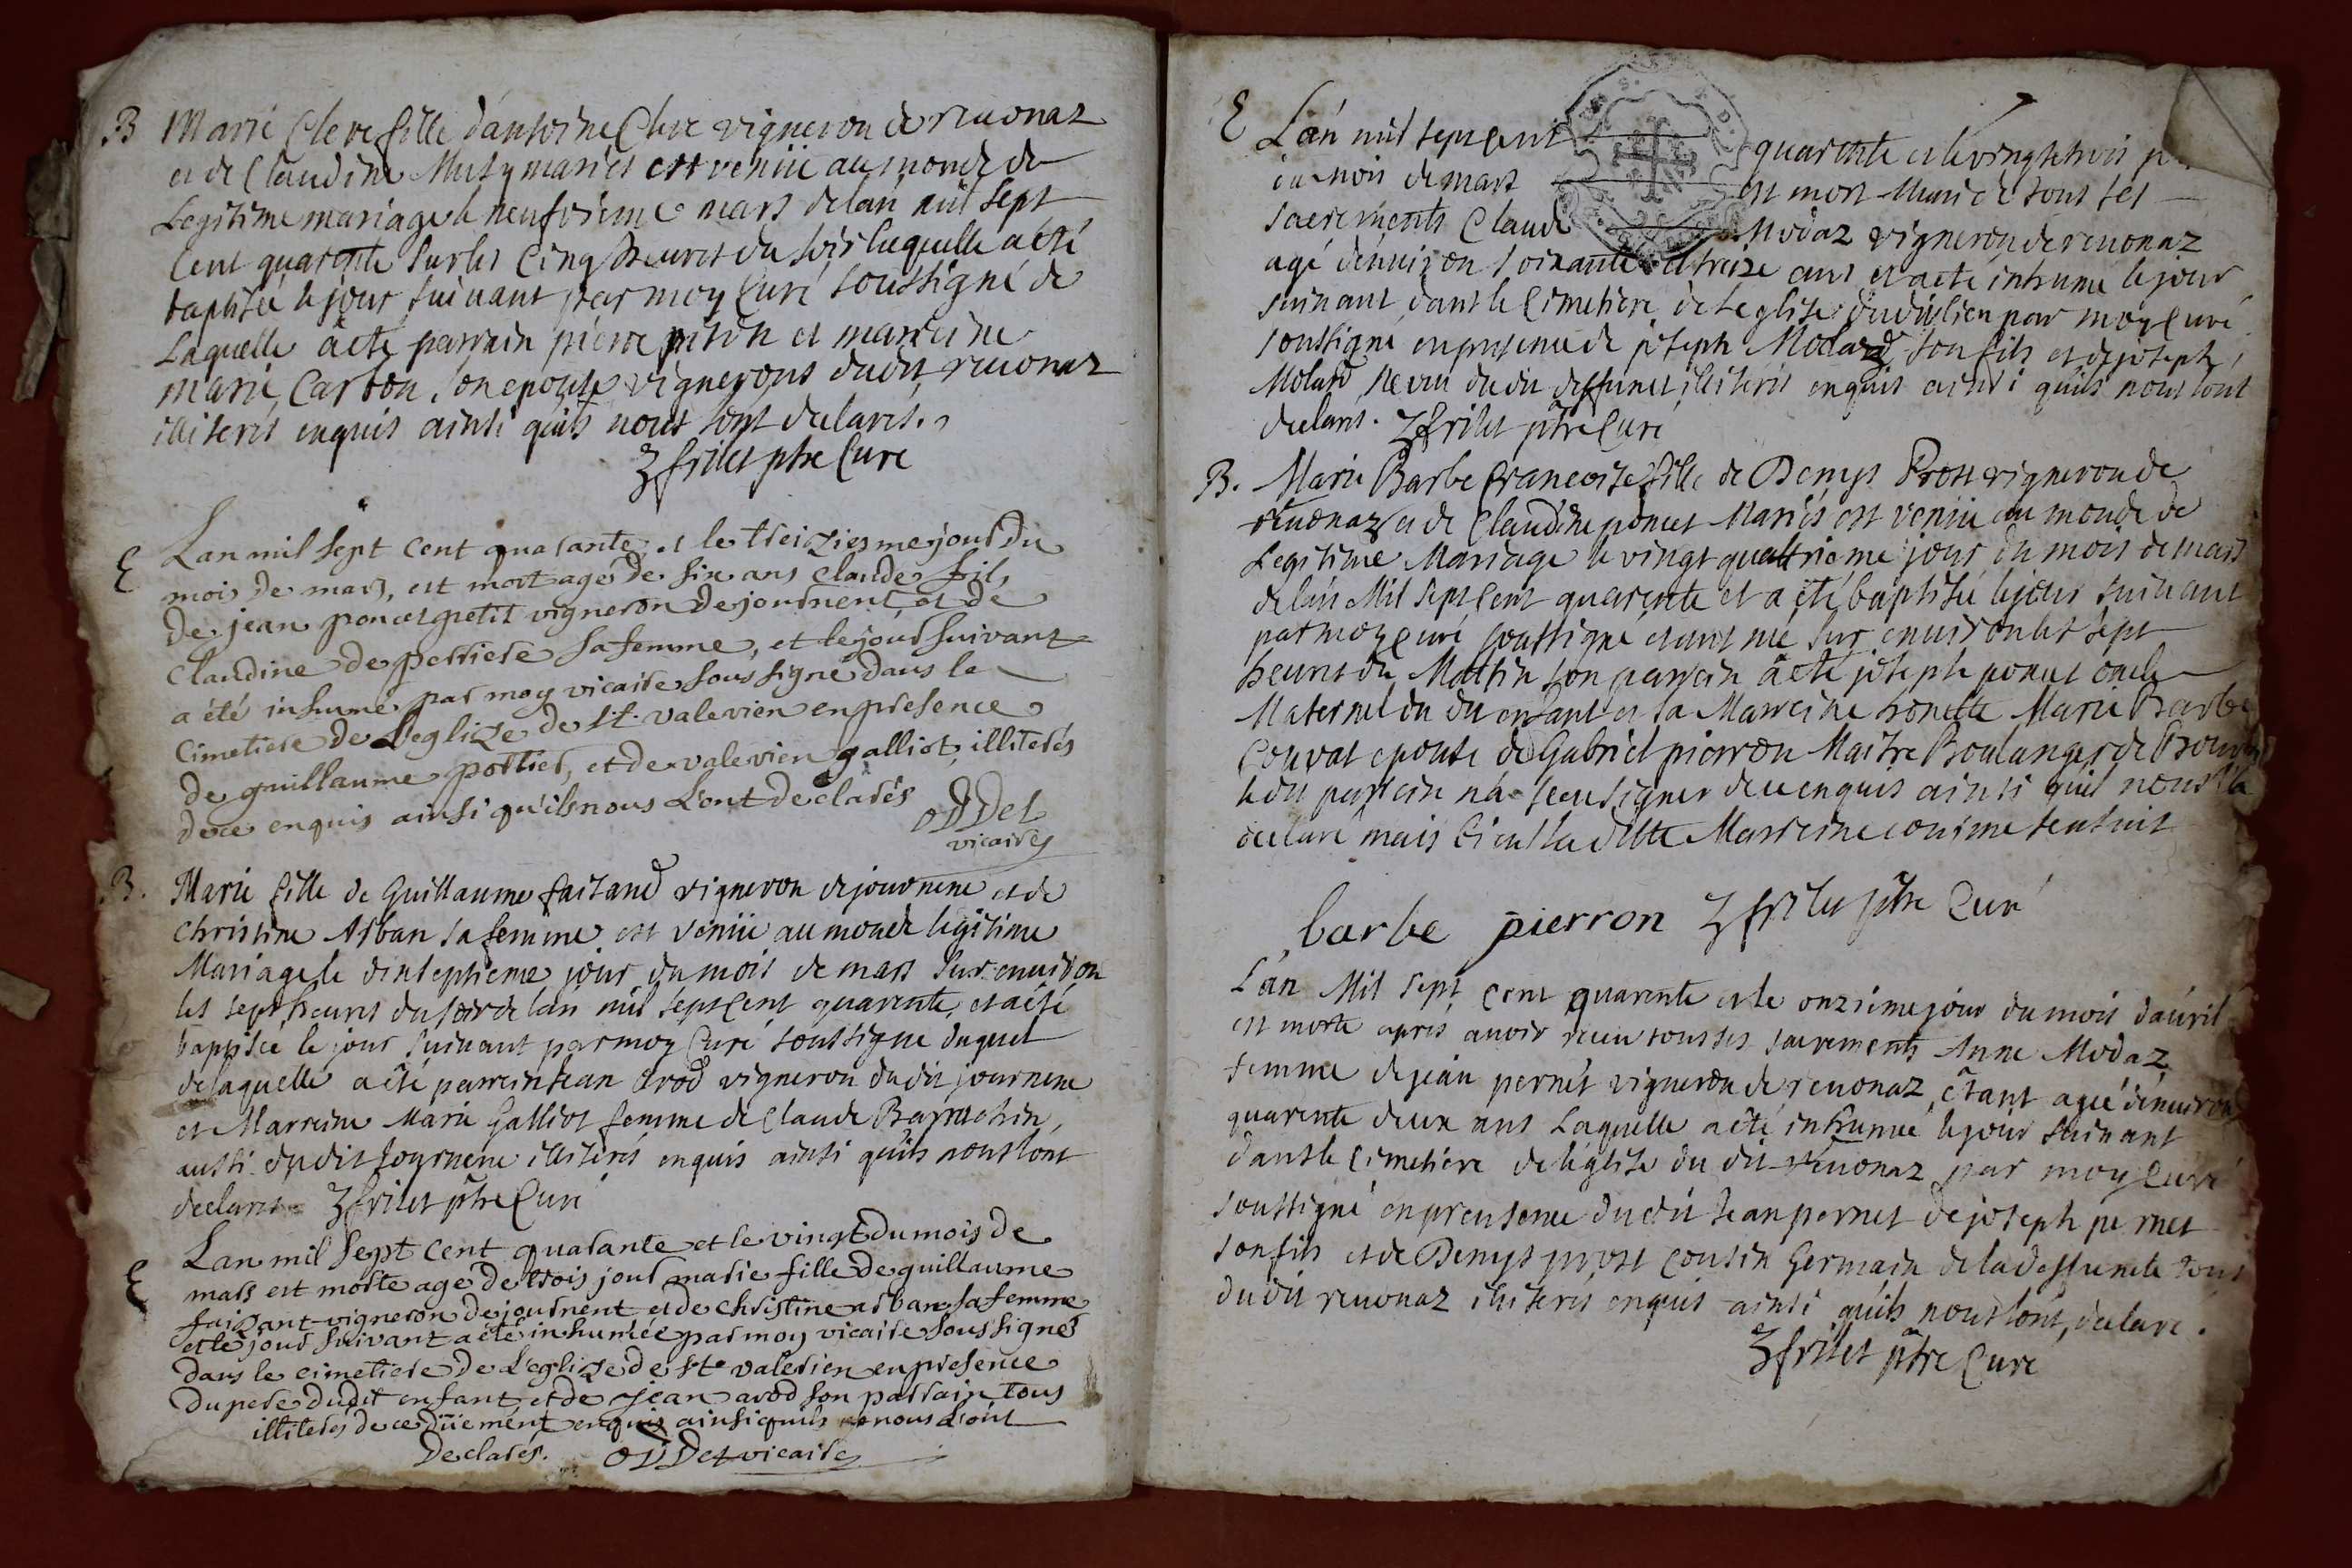 B Marie Cleve fille d'antoine Cleve vigneron de reuonaz
et de Claudine Musy mariés est veniie au monde de
Legitime mariage le neufvieme mars de lan mil sept
Cent quarente sur les Cinq heures du soir laquelle a été
baptisée le jour suivant par moy Curé soussigné de
Laquelle a été parrain pierre et marreine
marie Carbon son epouse vignerons dudit reuonaz
illiterés enquis ainsi quils nous l'ont declarés.
frilet ptre Curé
E Lan mil sept cent quarante et le treiziesme jour du
mois de mars, est mort agé de six ans claude fils
de jean poncet petit vigneron de journent, et de
Claudine de perriere sa femme, et le jour suivant
a été inhumé par moy vicaire sous signé dans le
Cimetiere de L'eglize de st. valerien en presence
de guillaume pottier, et de valerien galliot, illiterés
de ce enquis ainsi qu'ils nous L'ont declarés
ODDet
vicaire
B. Marie fille de Guillaume faisand vigneron de journene et de
Christine Arban sa femme est veniie au monde legitime
Mariage le dixseptieme jour du mois de mars sur environ
les sept heures du soir de lan mil sept Cent quarente, et a été
baptisée le jour suivant par moy Curé soussigné
de laquelle a été parrein Jean avod vigneron dudit journene
et Marreine Marie Galliot femme de Claude
aussi dudit Journene illiterés enquis ainsi quils nous l'ont
declarés frilet ptre Curé
E Lan mil sept cent quarante et le vingt du mois de
mars est morte age de trois jour marie fille de guillaume
faizant vigneron de journent et de christine arban sa femme
et le jour suivant a été inhumée par moy vicaire sous signé
dans le cimetiere de L'eglize de ste valerien en presence
du pere dudit enfant, et de jean avod son parrain tous
illiterés de ce düement enquis ainsi quils nous L'ont
declarés. ODDet vicaire
E L'an mil sept cent quarente et le vingt trois
du mois de mars est mort Muni de tous ses
sacrements Claude Modaz vigneron de reuonaz
agé d'environ soixante et treize ans et a eté inhumé le jour
suivant dans le Cimetiere de l'eglise dudit lieu par moy Curé
soussigné en presence de joseph Molard son fils et de joseph
Molard neveu dudit deffunct illiterés enquis ainsi quils nous l'ont
declaré. frilet ptre Curé
B. Marie Barbe francoise fille de Denys Prost vigneron de
reuonaz et de Claudine poncet Mariés est veniie au monde de
Legitime Mariage le vingt quattrieme jour du mois de mars
de lan Mil sept Cent quarente et a été baptisée le jour suivant
par moy curé soussigné etant née sur environ les sept
heures du Mattin son parrein a été joseph poncet oncle
Maternel du dit enfant et sa Marreine honette Marie Barbe
Couvat epouse de Gabriel pierron Maitre Boulanger de
le dit parrein n'a sceu signer de ce enquis ainsi quil nous l'a
declaré mais bien la ditte Marreine comme s'ensuit
barbe pierron frilet ptre Curé
L'an Mil sept cent quarente et le onzieme jour du mois d'avril
est morte aprés avoir receu tous ses sacrements Anne Modaz
femme de jean pernet vigneron de reuonaz, étant agée d'environ
quarente deux ans Laquelle a été inhumée le jour suivant
dans le Cimetiere de l'eglise du dit reuonaz par moy Curé
soussigné en presence dudit Jean pernet de joseph pernet
son fils et de Denys prost cousin Germain de la deffuncte tous
dudit reuonaz illiterés enquis ainsi quils nous l'ont declaré.
frilet ptre Curé